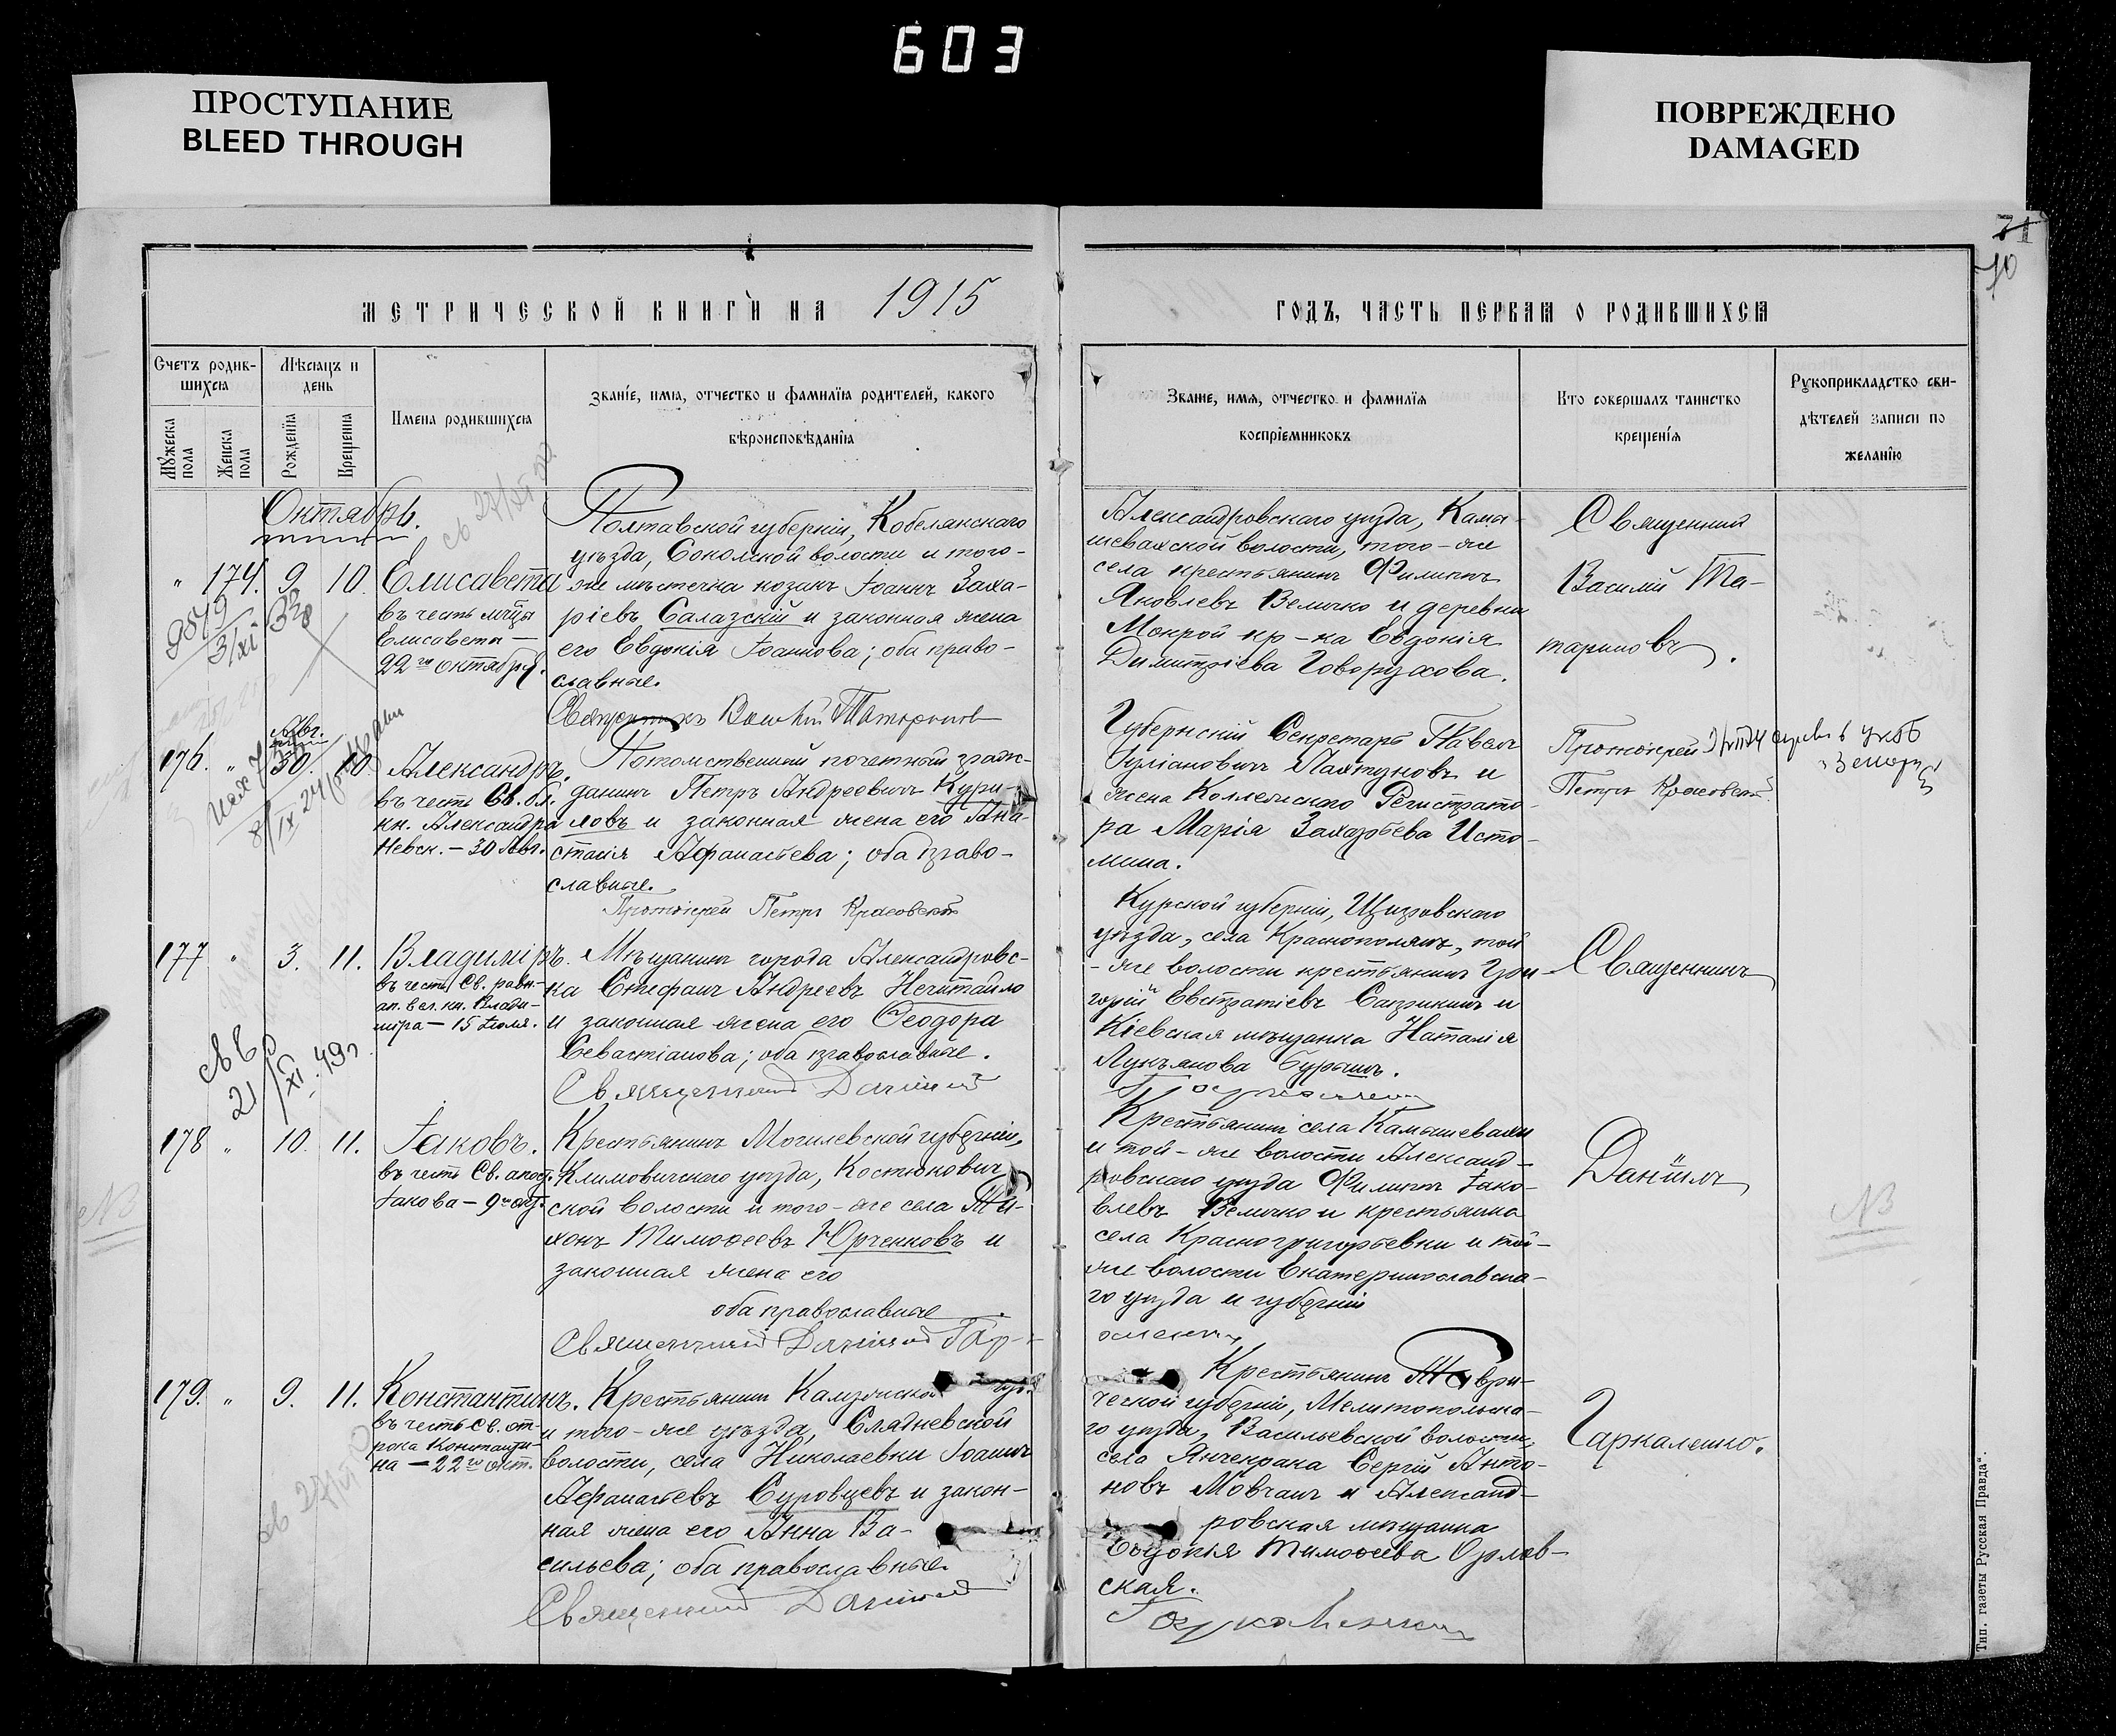 603
ПРОСТУПАНИЕ
BLEED THROUGH
ПОВРЕЖДЕНО
DAMAGED
71
70
МЕТРИЧЕСКОЙ КНИГИ НА 1915
ГОДЪ, ЧАСТЬ ПЕРВАЯ О РОДИВШИХСЯ
Счетъ родив-
шихся
Мужеска пола
Женска пола
Мѣсяцъ и
день
Рожденія
Крещенія
Имена родившихся
Званіе, имя, отчество и фамилія родителей, какого
вѣроисповѣданія
Званіе, имя, отчество и фамилія
воспріемниковъ
Кто совершалъ таинство
крещенія
Рукоприкладство сви-
дѣтелей записи по
желанію
Октябрь.
" 174. 9. 10. Елисавета
въ честь мч҃цы
Елисаветы —
22го октября.
9879
3/XI 38
Полтавской губерніи, Кобелякскаго
уѣзда, Сокольской волости и того-
же мѣстечка козакъ Іоаннъ Заха-
ріевъ Салазскій и законная жена
его Евдокія Іоаннова; оба право-
славные.
Священникъ Василій Татариновъ
Александровскаго уѣзда, Камы-
шевахской волости, того-же
села крестьянинъ Филиппъ
Яковлевъ Величко и деревни
Мокрой кр-ка Евдокія
Димитріева Говорухова.
Священникъ
Василій Та-
тариновъ.
176. " Авг. 30. 10. Александръ.
въ честь Св. бл.
кн. Александра
Невск. — 30 Авг.
Потомственный почетный граж-
данинъ Петръ Андреевичъ Кури-
ловъ и законная жена его Ана-
стасія Афанасьева; оба право-
славные.
Протоіерей Петръ Красовскій
Губернскій Секретарь Павелъ
Іуліановичъ Лахтуновъ и
жена Коллежскаго Регистрато-
ра Марія Захарьева Исто-
мина.
Протоіерей
Петръ Красовскій
177 " 3. 11. Владиміръ.
въ честь Св. равн-
ап. вел. кн. Влади-
міра — 15 Іюля.
21/XI 49 г
Мѣщанинъ города Александровс-
ка Стефанъ Андреевъ Нечитайло
и законная жена его Ѳеодора
Севастіанова; оба православные.
Священникъ Даніилъ
Курской губерніи, Щигровскаго
уѣзда, села Краснополянъ, той
-же волости крестьянинъ Гри-
горій Евстратіевъ Сапрыкинъ и
Кіевская мѣщанка Наталія
Лукьянова Бурашъ.
Гаркаленко
Священникъ
178 " 10. 11. Іаковъ.
въ честь Св. апост.
Іакова — 9го окт.
Крестьянинъ Могилевской губерніи,
Климовичскаго уѣзда, Костюкович-
ской волости и того-же села Ти-
хонъ Тимоѳеевъ Юрченковъ и
законная жена его
оба православные
Священникъ Даніилъ Гар-
Крестьянинъ села Камышевахи
и той-же волости Александ-
ровскаго уѣзда Филиппъ Іако-
влевъ Величко и крестьянка
села Красногригорьевки и той-
же волости Екатеринославска-
го уѣзда и губерніи
Даніилъ
NB
NB
179. " 9. 11. Константинъ.
въ честь Св. от-
рока Константи-
на — 22го окт.
Крестьянинъ Калужской губ.
и того-же уѣзда, Слядневской
волости, села Николаевки Іоаннъ
Афанасьевъ Суровцевъ и закон-
ная жена его Анна Ва-
сильева; оба православные.
Священникъ Даніилъ
Крестьянинъ Таври-
ческой губерніи, Мелитопольска-
го уѣзда, Васильевской волости,
села Янчекрака Сергій Анто-
новъ Мовчанъ и Александ-
ровская мѣщанка
Евдокія Тимоѳеева Орлов-
ская.
Гаркаленко
Гаркаленко.
Тип. газеты "Русская Правда".